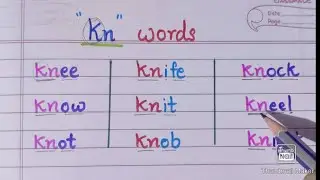 "Kn" words
knee knife knock
know knit kneel
knot knob
Date
Page